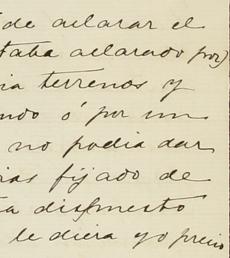 de aclarar el
taba aclarado por)
ia terrenos y
ndo ó por un
no podia dar
ias fijado de
a dispuesto
le diera yo precio